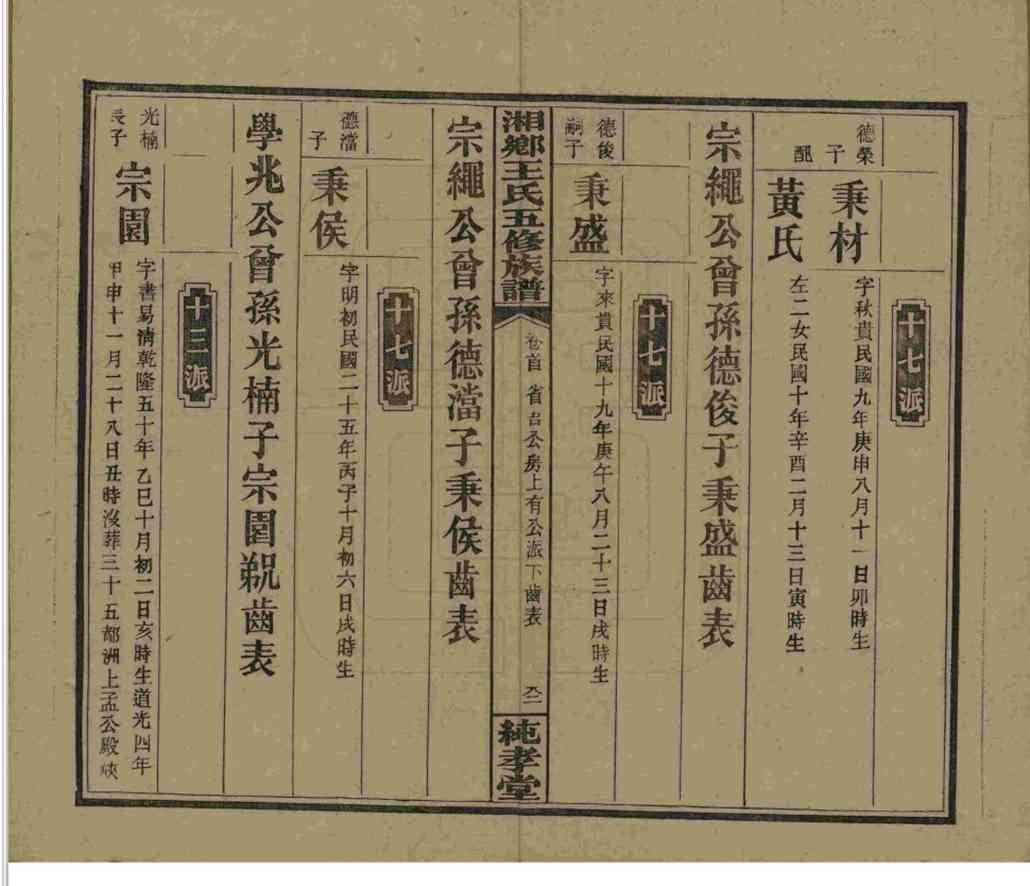 十七派
德榮子
秉材
字秋貴民國九年庚申八月十一日卯時生
配
黃氏
左二女民國十年辛酉二月十三日寅時生
宗繩公曾孫德俊子秉盛齒表
十七派
德俊嗣子
秉盛
字來貴民國十九年庚午八月二十三日戌時生
湘鄉王氏五修族譜
卷首
省吉公房上有公派下齒表
純孝堂
宗繩公曾孫德澢子秉侯齒表
十七派
德澢子
秉侯
字明初民國二十五年丙子十月初六日戌時生
學兆公曾孫光楠子宗園齒表
十三派
光楠長子
宗園
字書易清乾隆五十年乙巳十月初二日亥時生道光四年
甲申十一月二十八日丑時沒葬三十五都洲上孟公殿